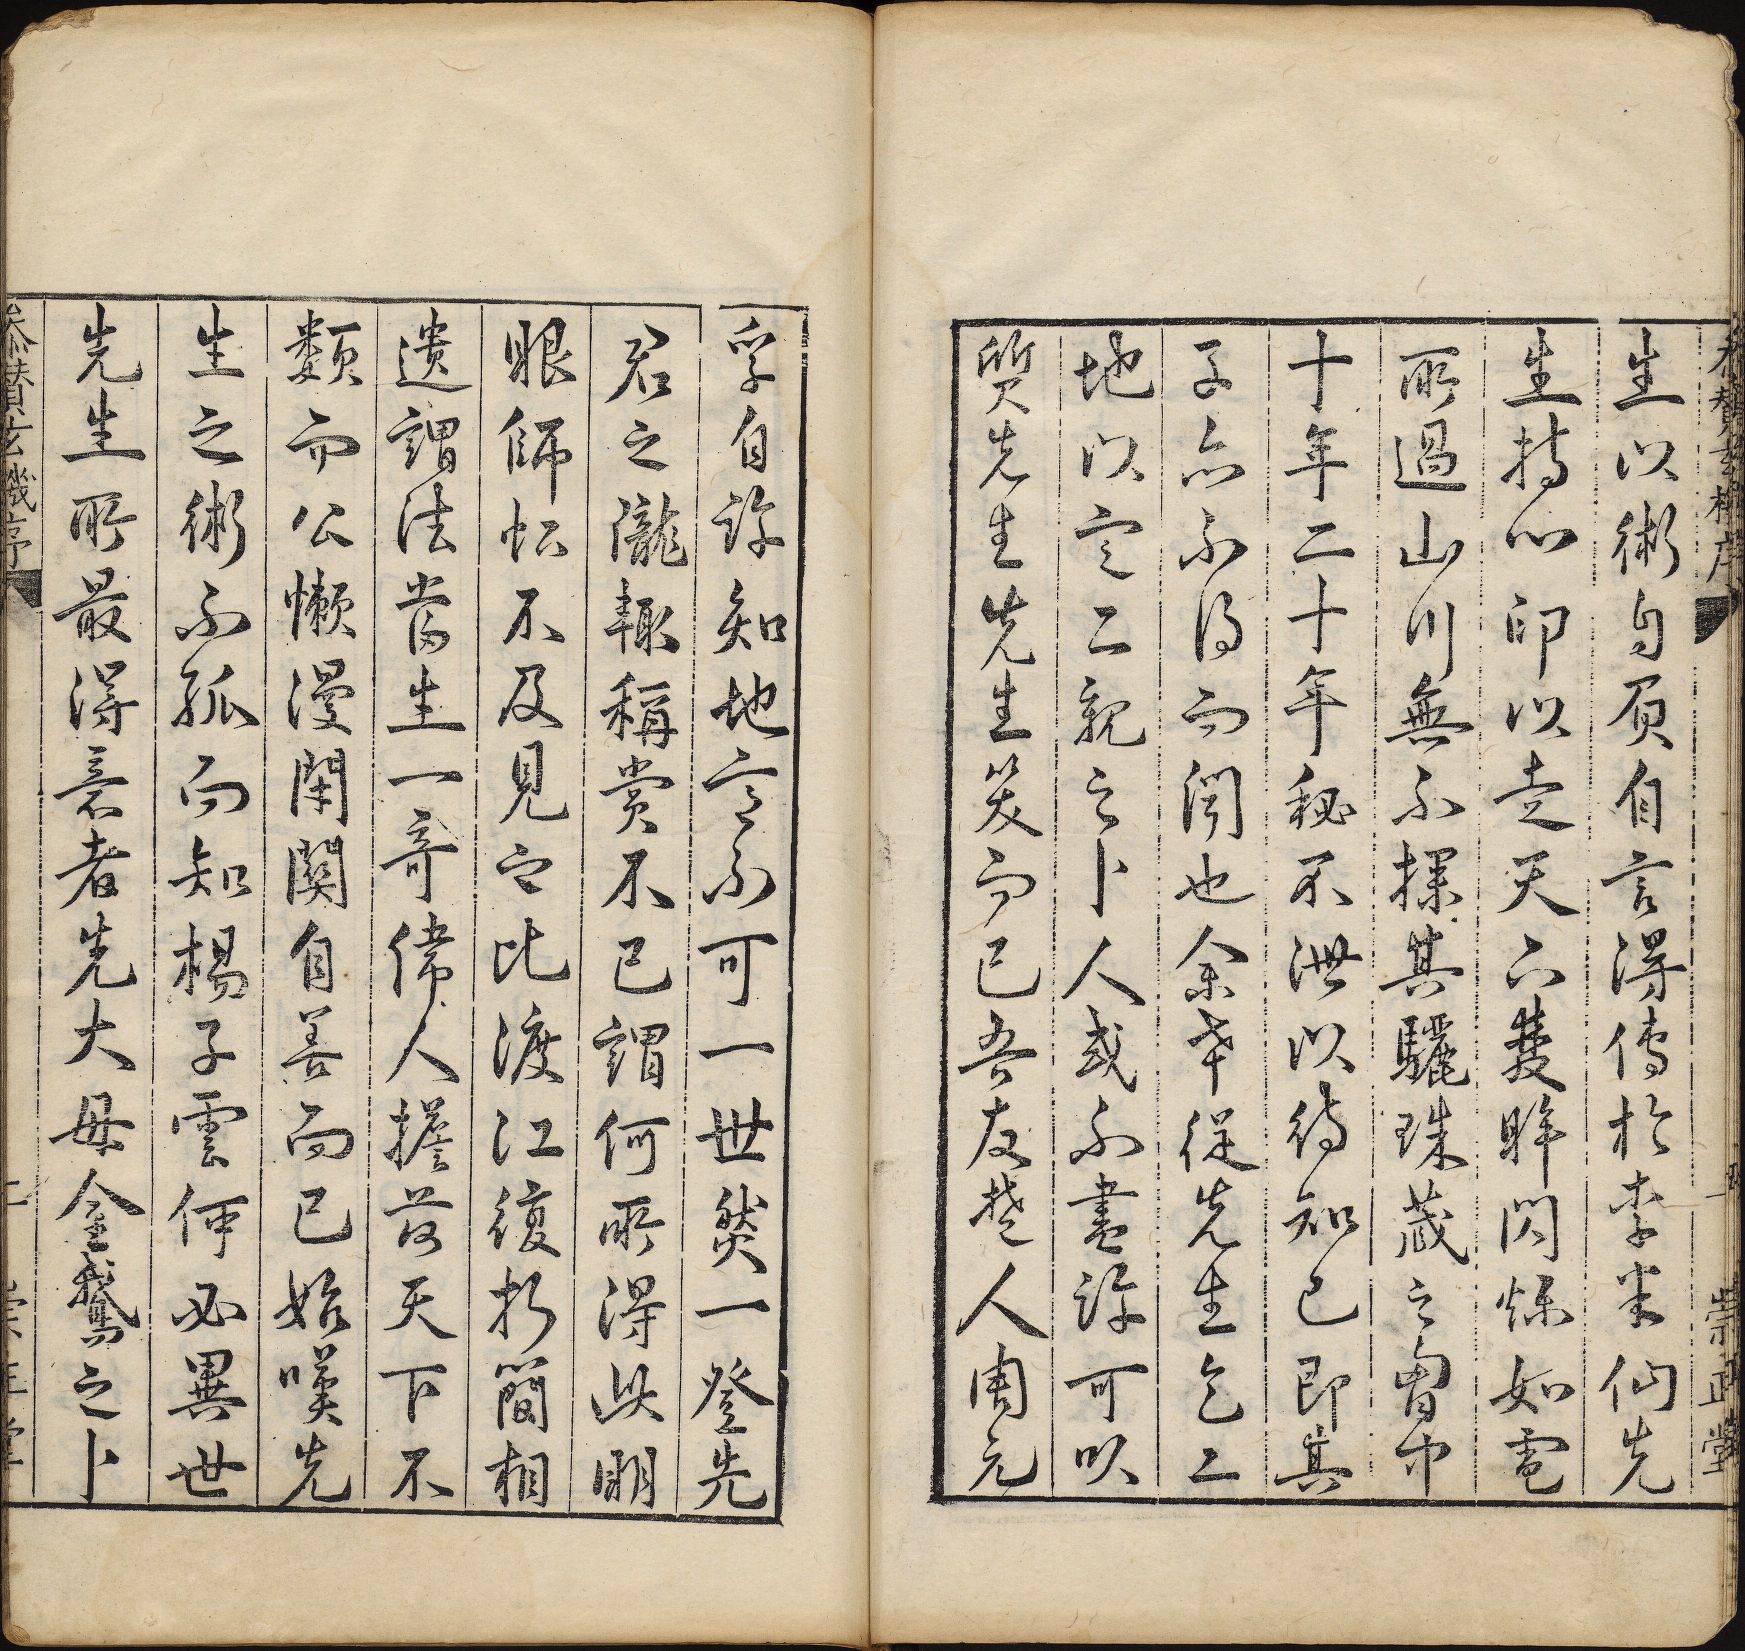 生以術自負自言得傳於李米仙先
生持心印以走天下雙眸閃爍如電
所過山川無不探其驪珠藏之胷中
十年二十年秘不泄以待知己即其
子亦不得而聞也余耑從先生乞二
地以定二親之卜人或不盡許可以
質先生先生笑而已吾友楚人周元
孚自許知地言不可一世然一登先
君之瀧輙稱賞不已謂何所得此明
眼師恨不及見之比渡江復折簡相
遺謂法當生一奇偉人擔荷天下不
類而公懶漫閑闃自善而已始嘆先
生之術不孤而知楊子雲何必異世
先生所最得意者先大母金鵞之卜
參贊玄機序
崇正堂